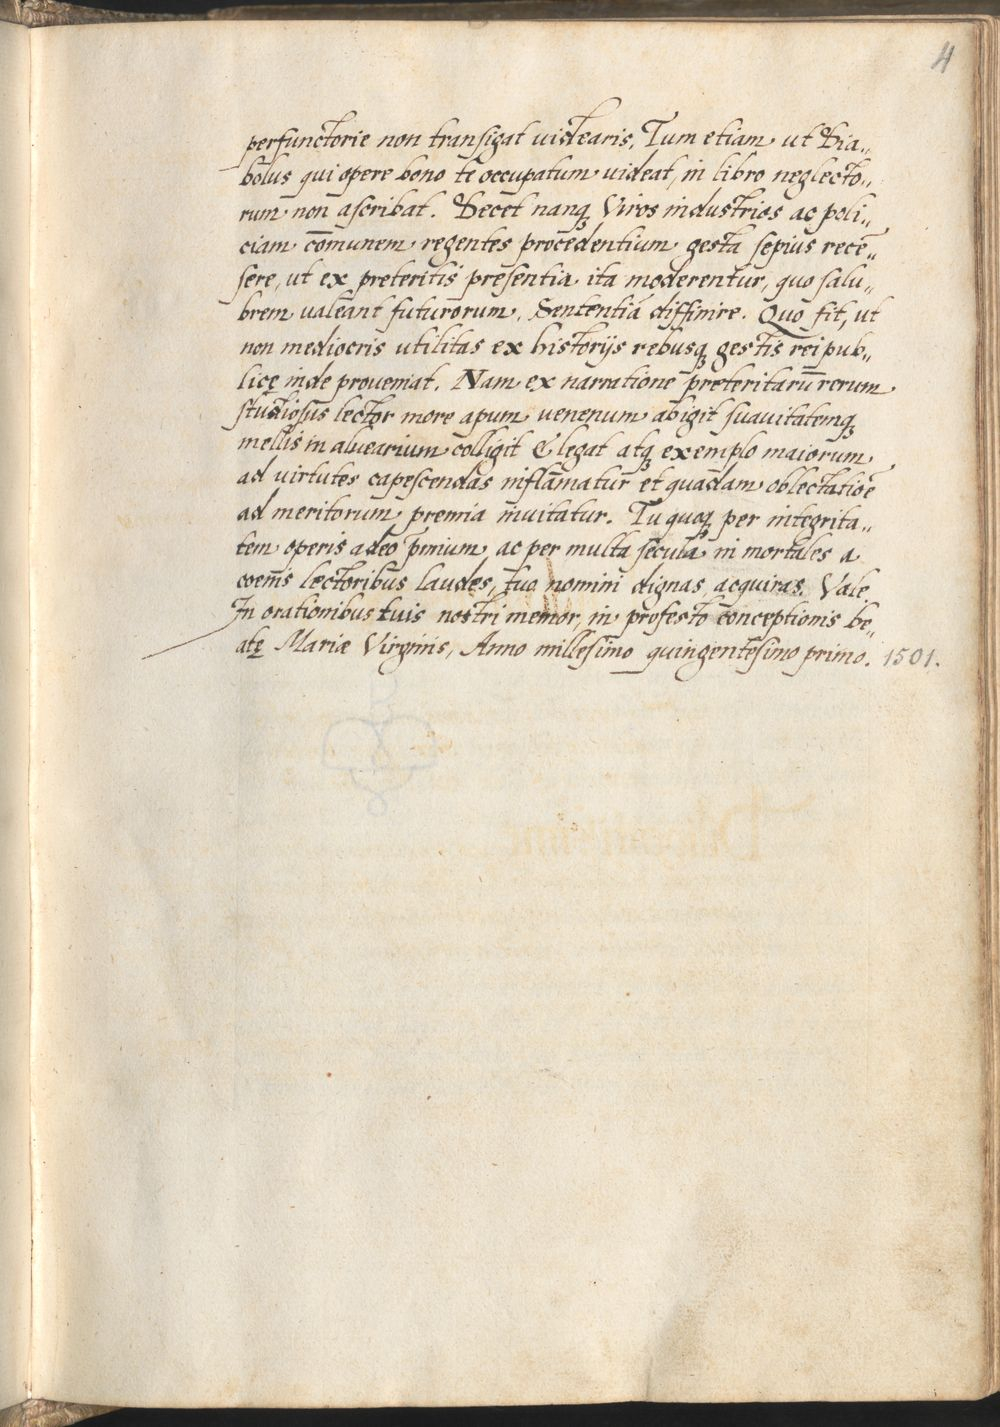 4
perfunctorie non transigat uidearis. Tum etiam ut Dia„
bolus qui opere bono te occupatum uideat, in libro neglecto„
rum non ascribat. Decet nanq̨ Viros industrios ac poli„
ciam cōmunem regentes procedentium gesta sepius recē„
sere, ut ex preteritis presentia ita moderentur, quo salu„
brem ualeant futurorum. Sententiā diffinire. Quo fit, ut
non mediocris utilitas ex historijs rebusq̨ gestis rei pub„
licę inde proueniat. Nam ex narratione preteritarū rerum
studiosus lector more apum uenenum abigit suauitatemq̨
mellis in aluearium colligit Elegat atq̨ exemplo maiorum
ad virtutes capescendas inflāmatur et quadam oblectatiōe
ad meritorum premia inuitatur. Tu quoq̨ per integrita„
tem operis a deo p̄mium ac per multa secula in mortales a
coem̄s lectoribus laudes, tuo nomini dignas acquiras. Vale
In orationibus tuis nostri memor, in profesto conceptionis be„
atę Mariæ Virginis, Anno millesimo quingentesimo primo. 1501.